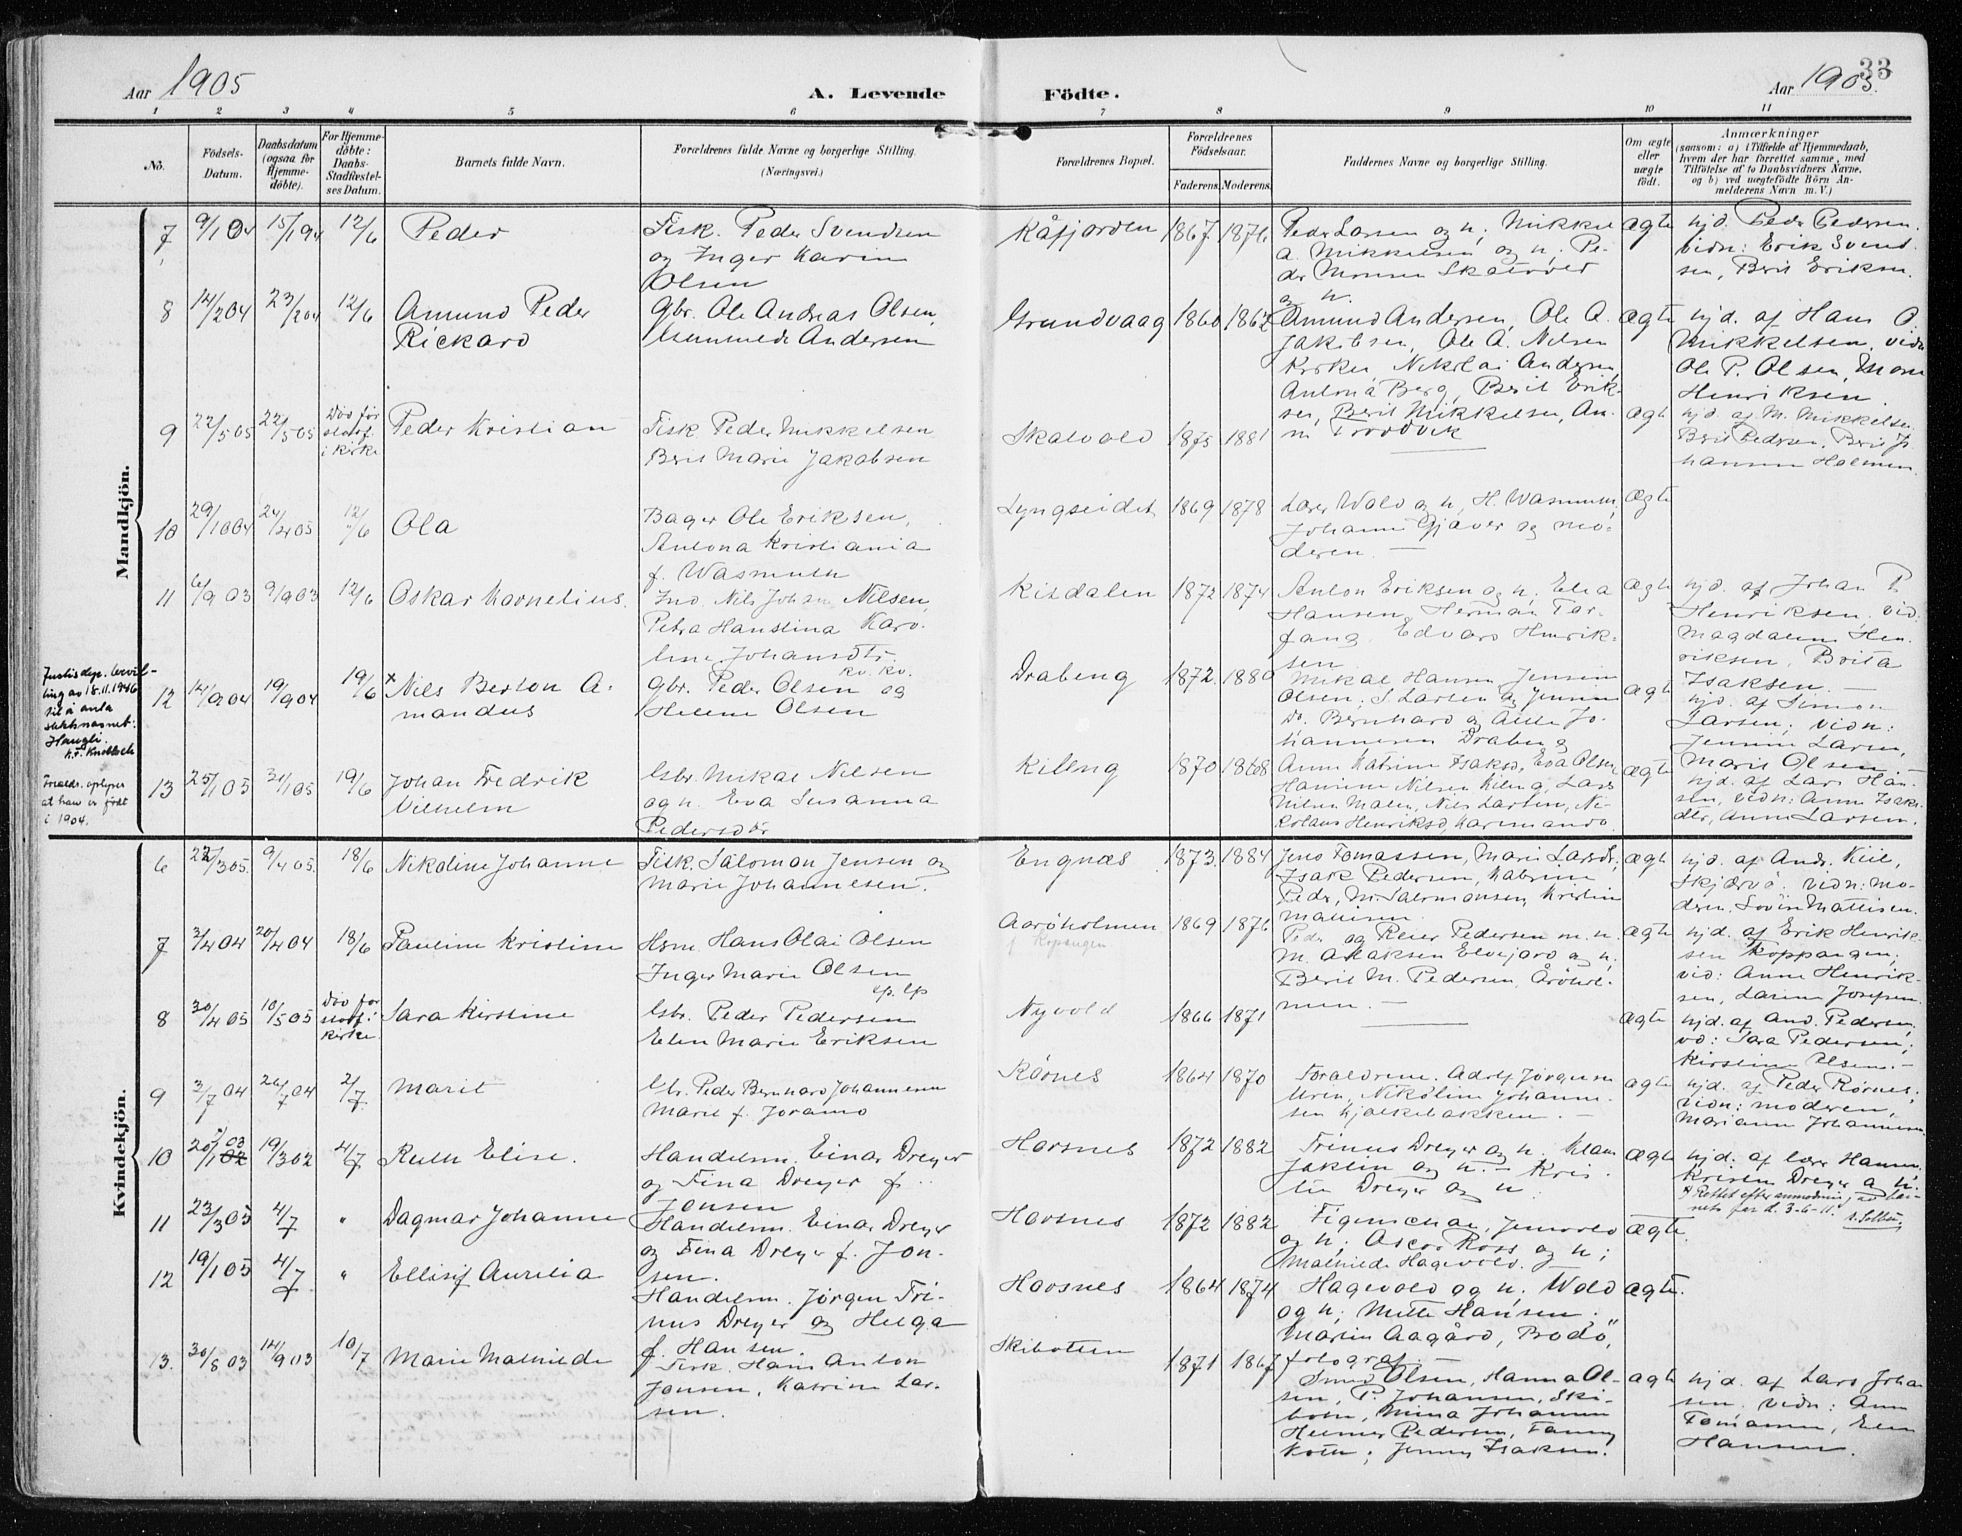 33
Aar 1905
A. Levende
Födte.
Aar 1905.
1 2 3 4 5 6 7 8 9 10 11
No.
Födsels-
Datum.
Daabsdatum
(ogsaa för
Hjemme-
döbte).
For Hjemme-
döbte:
Daabs-
Stadfæstel-
ses Datum.
Barnets fulde Navn.
Forældrenes fulde Navne og borgerlige Stilling.
(Næringsvei.)
Forældrenes Bopæl.
Forældrenes
Födselsaar.
Faderens. Moderens.
Faddernes Navne og borgerlige Stilling.
Om ægte
eller
uægte
födt.
Anmærkninger
(saasom: a) i Tilfælde af Hjemmedaab,
hvem der har forrettet samme, med
Tilföielse af to Daabsvidners Navne,
og b) ved uægtefödte Börn An-
melderens Navn m. V.)
Mandkjön.
7 9/1 04 15/1 94 12/6 Peder
Fisk. Peder Svendsen
og Inger Karin
Olsen
Kåfjorden 1867 1876
Peder Larsen og h; Mikkel
A. Mikkelsen og h; Pe-
der Monsen Skatvold
og h.
ægte
hjd. Peder Pedersen.
vidn: Erik Svend-
sen, Berit Eriksen.
8 14/2 04 23/2 04 12/6 Amund Peder
Rickard
Gbr. Ole Andreas Olsen,
Andersen
Grundvaag 1860 1862
Amund Andersen, Ole A.
Jakobsen, Ole A. Nilsen
Nikolai Andersen,
Antona Berg, Berit Erik-
sen, Berit Mikkelsen, An-
ægte
hjd. af Hans O
Mikkelsen, vidn
Ole P. Olsen, Mons
Henriksen.
9 22/5 05 22/5 05 Död før
stadf.
i kirke
Peder Kristian
Fisk Peder Mikkelsen
Berit Marie Jakobsen
Skatvold 1875 1881
ægte
hjd. af M. Mikkelsen
Berit Pedersen, Berit Jo
hansen Holmen.
10 29/10 04 24/2 05 12/6 Ola
Bager Ole Eriksen,
Antona Kristiania
f. Wasmuth
Lyngseidet 1869 1878
Lærer Wold og h, H. Wasmuth,
Johanne Gjæver og mo-
deren. —
ægte
11 6/9 03 9/9 03 12/6 Oskar Kornelius.
Ind. Nils Johan Nilsen,
Petra Hanstina Karo-
line Johansdtr.
kv. kv.
Kisdalen 1872 1874
Anton Eriksen og h; Elia
Hansen, Herman Tor-
fang, Edvard Henrik-
sen
ægte
hjd. af Johan P
Henriksen, vid.
Magdalene Hen-
riksen, Brita
Isaksen. —
Justisdep. bevil-
ling av 18.11.1946
til å anta
slektsnavnet:
Haugli.
12 14/9 04 19/9 04 19/6 x Nils Berton A-
mandus
Gbr. Peder Olsen og
Helene Olsen
Draberg 1872. 1880
Mikal Hansen, Jensine
Olsen, S. Larsen og Jensine
do. Bernhard og Anne Jo-
hannesen Draberg
ægte
hjd. af Simon
Larsen; vidn:
Jensine Larsen,
Marit Olsen
Foreldr. oplyser
at han er født
i 1904.
13 25/1 05 31/1 05 19/6 Johan Fredrik
Vilhelm
Gbr. Mikal Nilsen
og h. Eva Susanna
Pedersdtr
Kileng 1870 1868
Anne Katrine Isaksd, Eva Olsen,
Hansine Nilsen Kileng, Lars
Nilsen Malen, Nils Larsen, Ni-
kolaus Henriksd,
ægte
hjd. af Lars Han-
sen, vidn: Anne Isaks-
dtr, Anne Larsen.
Kvindekjön.
6 22/3 05. 9/4 05. 18/6 Nikoline Johanne
Fisk. Salomon Jensen og
Marie Johannesen.
Engnæs 1873. 1884
Jens Tomassen, Marie Larsdt,
Isak Pedersen, Katrine
Peders, M. Salomonsen, Kristin
Mattisen
ægte
hjd. af Andr. Kiil,
Skjærvö: vidn: Mo-
deren, Lovise Mattisen.
7 3/4 04 20/4 04 18/6 Pauline Kristine
Hsm. Hans Olai Olsen
Inger Marie Olsen
lp. lp
Aaröholmen
f. Kopangen
1869 1876
Peder og Reier Pedersen m. h.
M. A. Isaksen Elvejord og h;
Berit M. Pedersen, Åröhol-
men. —
ægte
hjd. af Erik Henrik-
sen Koppangen;
vid: Anne Henrik-
sen, Larine Josefsen.
8 30/4 05 10/5 05 Död før
stadf. i
kirke.
Sara Kirstine
Gbr. Peder Pedersen
Elen Marie Eriksen
Nyvold 1866 1871
ægte
hjd. af And. Pedersen,
vd: Sara Pedersen;
Kirstine Olsen. —
9 3/7 04 26/7 04 2/7 Marit
Gbr. Peder Bernhard Johannesen
Marit f. Joramo
Rørnes 1864 1870
Forældrene. Adolf Jørgensen
Uren, Nikoline Johanne-
sen Kjækebakken. —
ægte
hjd. af Peder Rørnes;
vidn: moderen,
Mariann Johannesen
10 20/1 03 02 19/3 02 4/7 Ruth Elise.
Handelsm. Einar Dreyer
og Fina Dreyer f.
Jensen
Havsnes 1872 1882
Trinus Dreyer og h. Klaus
Jaklin og h. — Kris-
tin Dreyer og h.
ægte
hjd. af lærer Hansen.
Kristen Dreyer og h.
Rettet efter anmodning,
f. d. 3-6-11.
11 23/3 05 4/7 " Dagmar Johanne
Handelsm. Einar Dreyer
og Fina Dreyer f. Jon-
sen.
Havsnes 1872 1882
Figenschau, Jensvold
og h; Oscar Ross og h;
Mathilde Hagevold. —
ægte.
12 19/1 05 4/7 " Ellisif Aurelia
Handelsm. Jørgen Tri-
nus Dreyer og Helga
f. Hansen.
Havsnes 1864 1874
Hagevold og h; Wold
og h; Mette Hansen;
Martin Aagård, Bodö,
fotograf. —
ægte.
13. 30/8 03 14/9 03 10/7 Marie Mathilde
Fisk. Hans Anton
Jensen, Katrine Lar-
sen.
Skibotten 1871 1867
Olsen, Hanna Ol-
sen, P. Johansen, Ski-
botn, Mina Johansen
Helmer Pedersen, Fanny
Koth; Jenny Isaksen.
ægte
hjd. af Lars Johan
sen. vidn: Ane
Tomasen, Elen
Hansen.